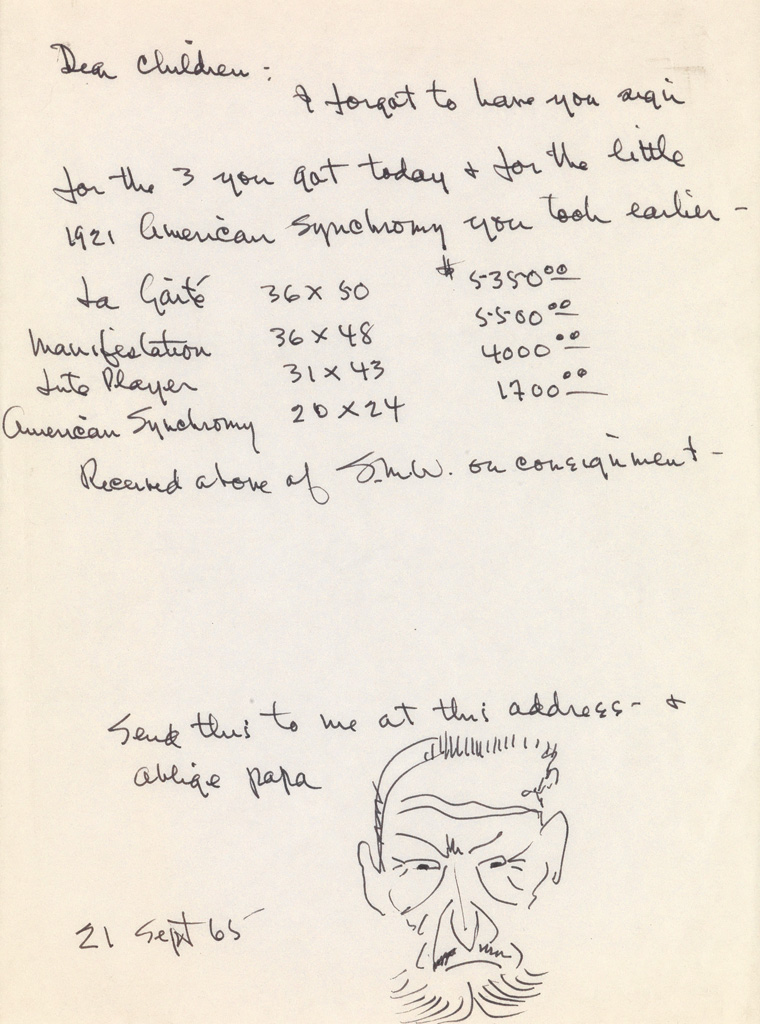 Dear children:
I forgot to have you sign
for the 3 you got today + for the little
1921 American Synchromy you took earlier -
La Gaité 36 x 50 $ 5350.00
Manifestation 36 x 48 5500.00
Lute Player 31 x 43 4000.00
American Synchromy 20 x 24 1700.00
Received above of S.M.W. on consignment -
Send this to me at this address - +
oblige papa
21 Sept 65